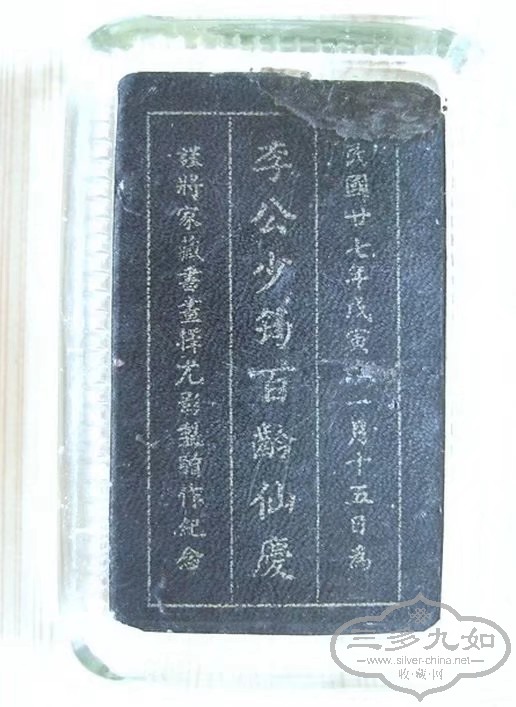 民國廿七年戊寅一月十五日為
李公少百齡仙慶
謹將家藏書畫擇尤影製作紀念
三多九如
www.silver-china.net
·收·藏·网·